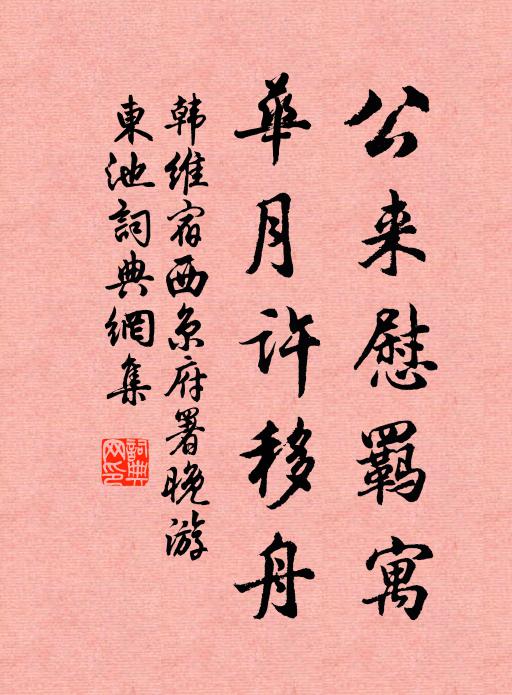 公来慰羁寓
華月许移舟
韩維宿西京府署晚游
東池詞典網集
詞典
网印